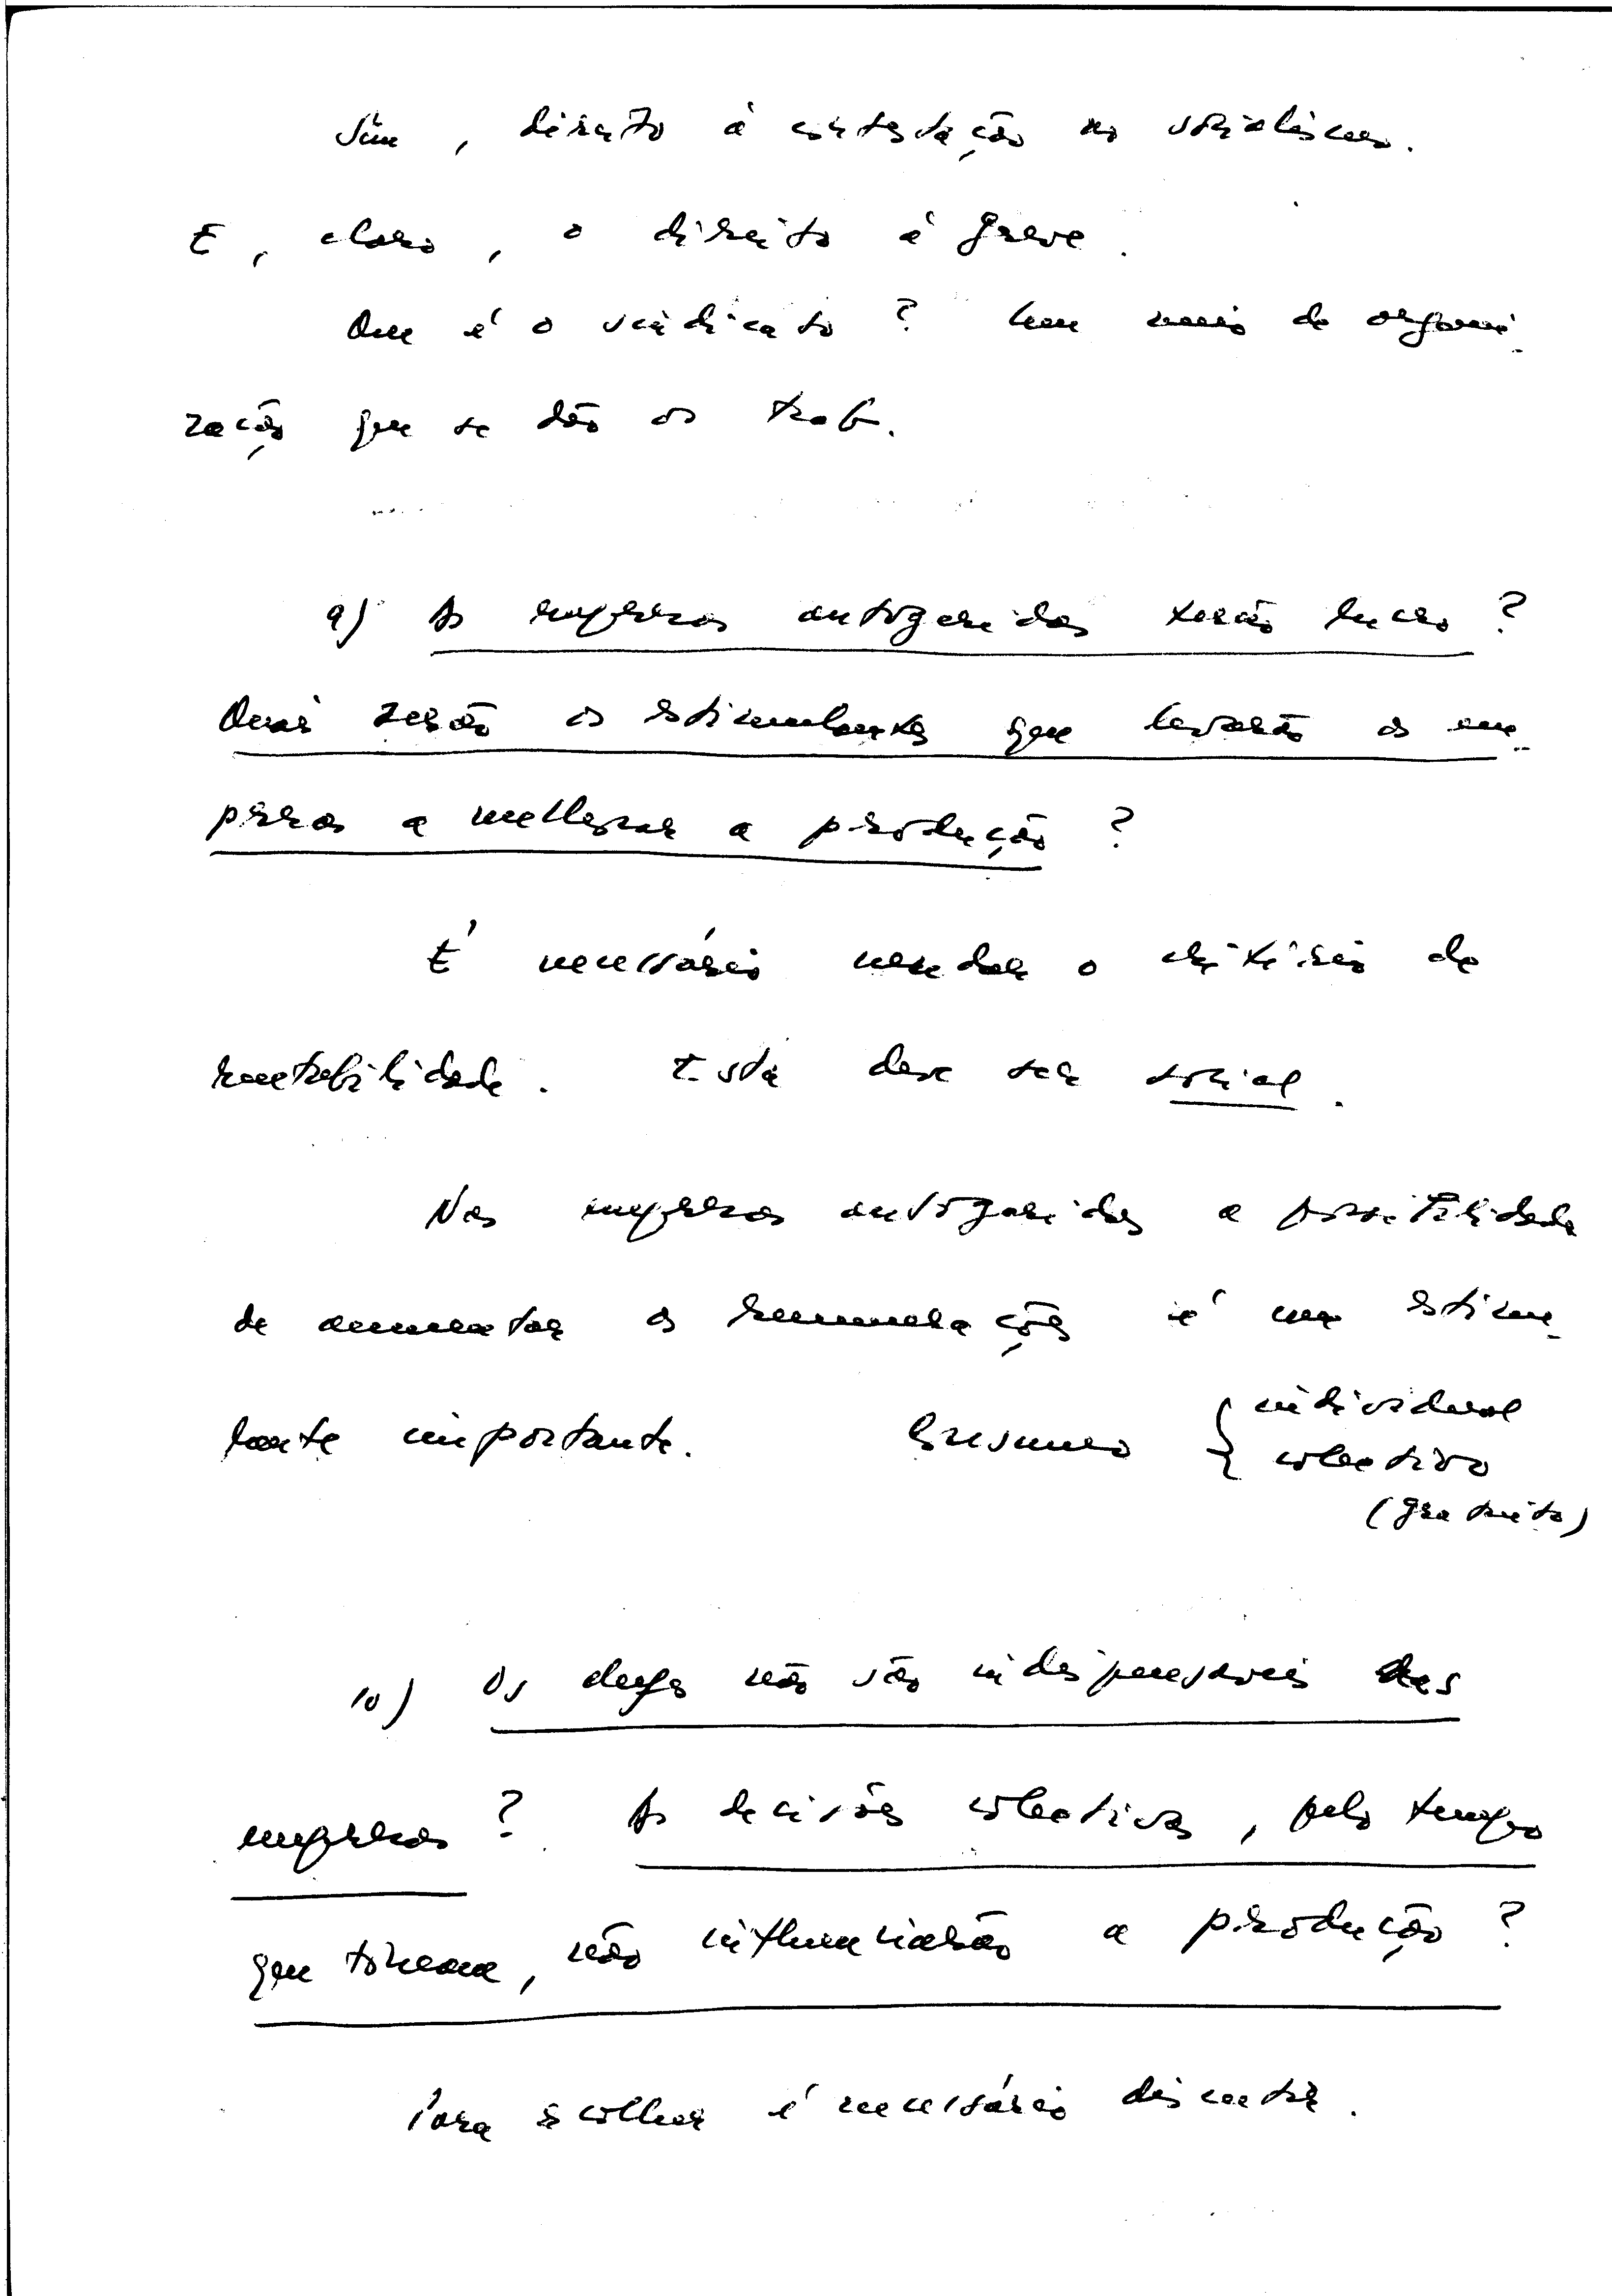 Sim, direito à contestação no socialismo.
E, claro, o direito à greve.
Que é o sindicato? Um meio de organi-
zação que se dão os trab.
9) As empresas autogeridas terão lucro?
Quais serão os estimulantes que levarão as em-
presas a melhorar a produção?
É necessário mudar o critério de
rentabilidade. Esta deve ser social.
Nas empresas autogeridas a possibilidade
de aumentar as remunerações é um estimu-
lante importante. Consumo { individual
colectivo
(gratuito)
10) Os chefes não são indispensáveis nas
empresas? As decisões colectivas, pelo tempo
que tomam, não influenciarão a produção?
Para escolher é necessário discutir.